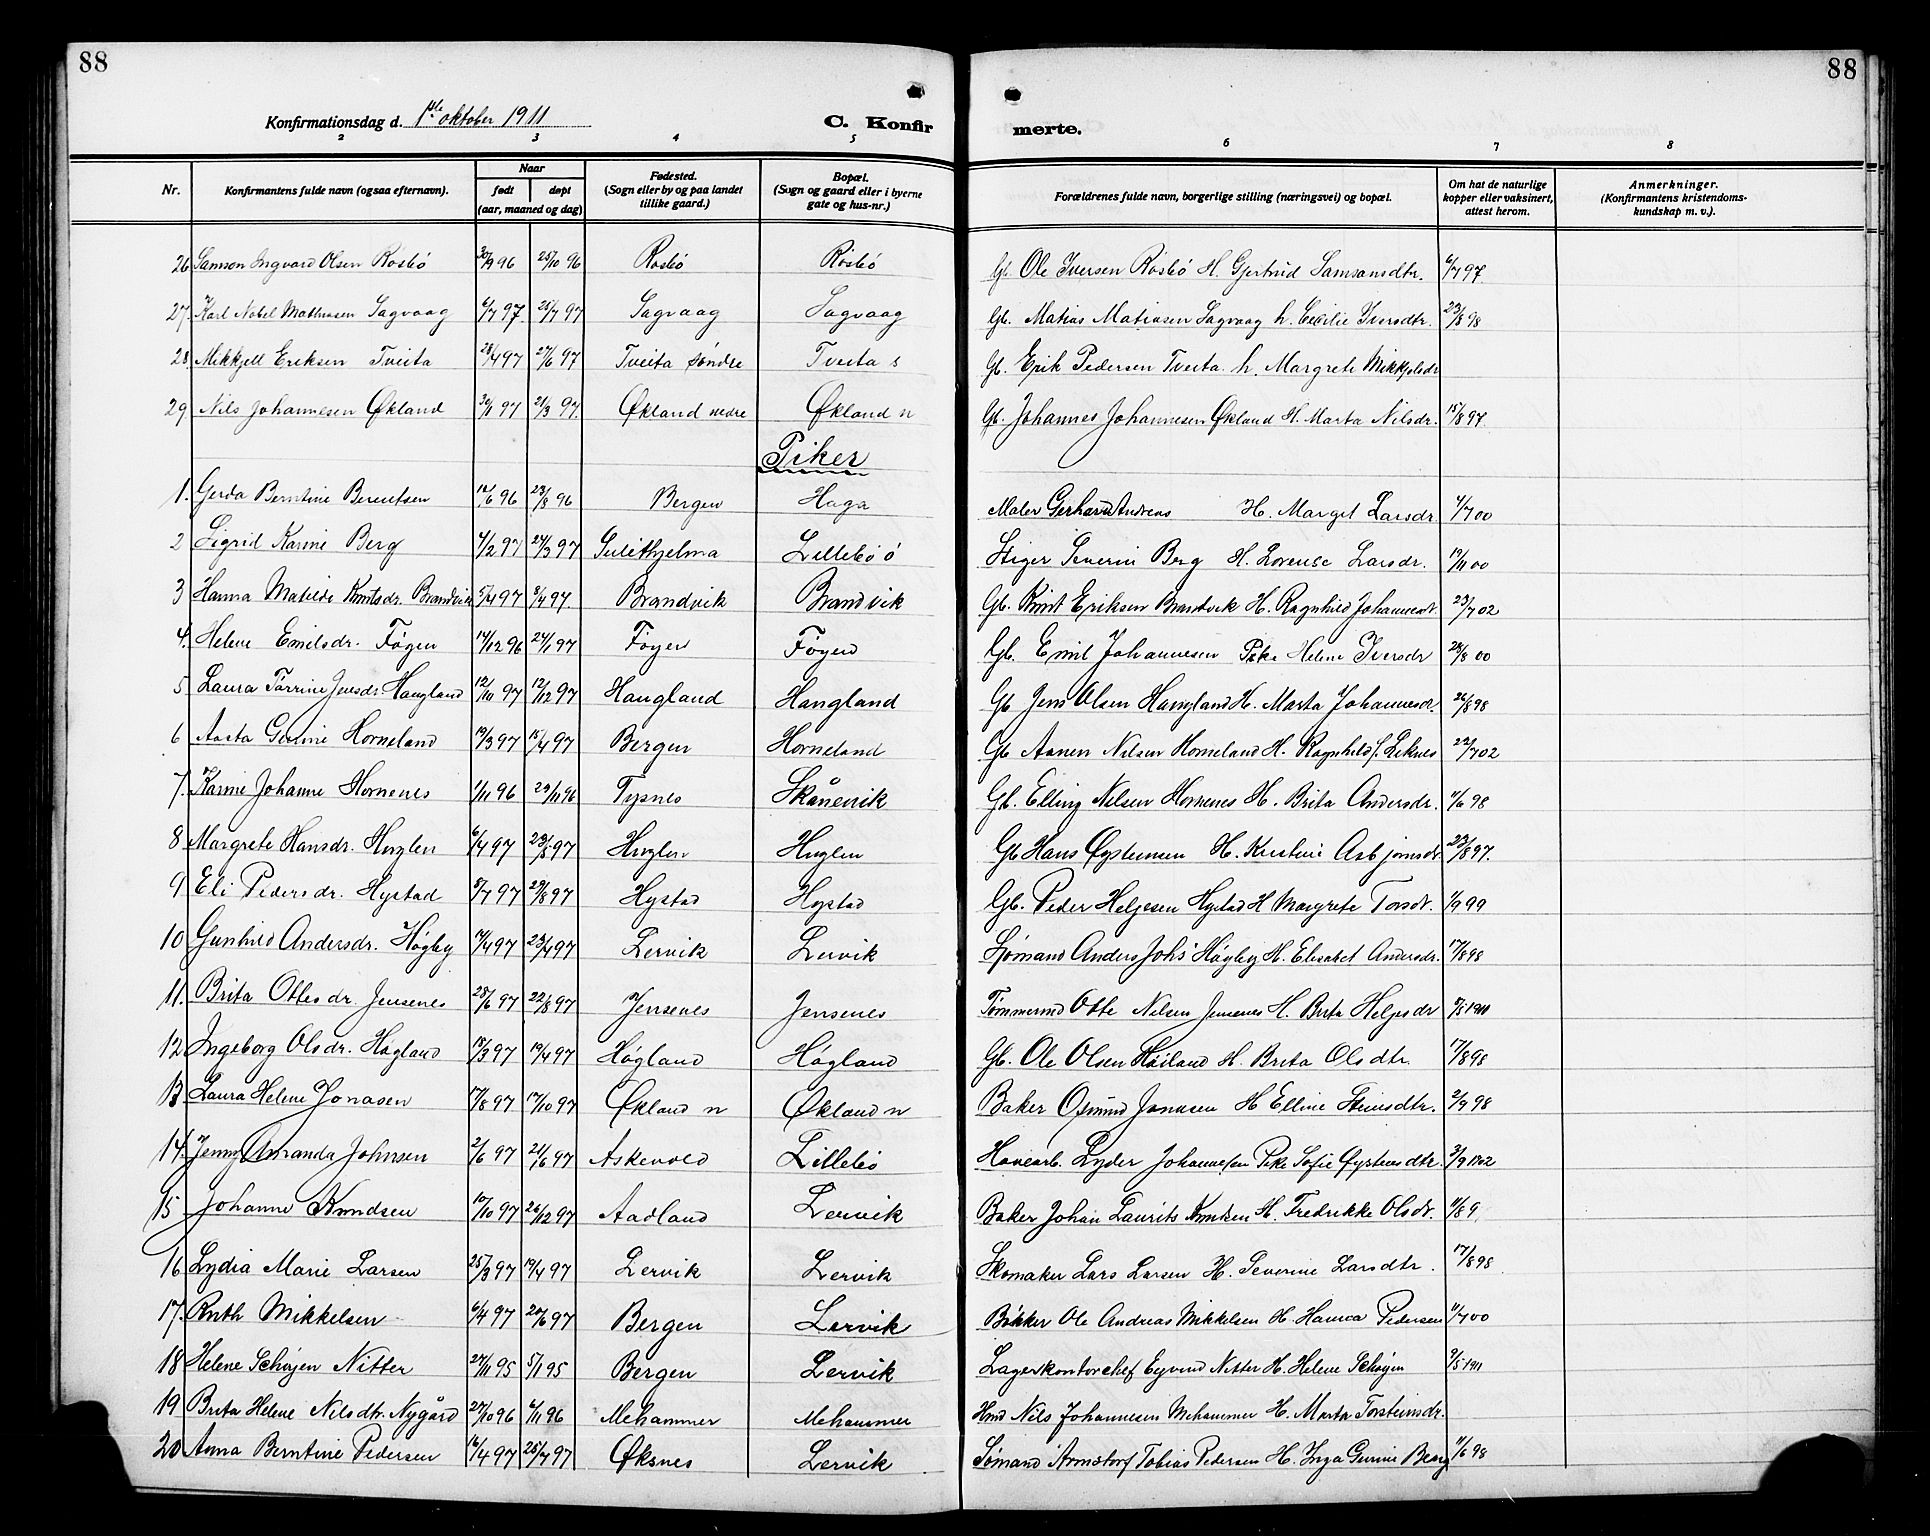 88
88
Konfirmationsdag d. 1ste oktober 1911
C. Konfir
merte.
2 3 4 5 6 7 8
Nr.
Konfirmantens fulde navn (ogsaa efternavn).
Naar
født døpt
(aar, maaned og dag)
Fødested.
(Sogn eller by og paa landet
tillike gaard.)
Bopæl.
(Sogn og gaard eller i byerne
gate og hus-nr.)
Forældrenes fulde navn, borgerlige stilling (næringsvei) og bopæl.
Om hat de naturlige
kopper eller vaksinert,
attest herom.
Anmerkninger.
(Konfirmantens kristendoms-
kundskap m. v.).
26 Samson Ingvard Olsen Rosbø 30/9 96 25/10 96 Rosbø Rosbø Gb. Ole Iversen Rosbø H. Gjertrud Samsonsdtr. 6/7 97
27. Karl Nobel Mathiasen Sagvaag 6/7 97. 25/7 97 Sagvaag Sagvaag Gb. Matias Matiasen Sagvaag h. Cecilie Iversdtr. 23/8 98
28 Mikkjell Eriksen Tveita 28/4 97 27/6 97 Tveita søndre Tveita s Gb. Erik Pedersen Tveita h. Margrete Mikkjelsdr
29 Nils Johannesen Økland 30/1 97 21/3 97. Økland nedre Økland n Gb. Johannes Johannesen Økland H. Marta Nilsdr. 15/8 97.
Piker
1. Gerda Berntine Berentsen 12/6 96 23/8 96 Bergen Haga Maler Gerhard Andreas H. Margit Larsdr. 4/7 00
2 Sigrid Karine Berg 4/2 97 24/3 97 Sulithjelma Lillebø ö Stiger Severin Berg H. Lorense Larsdr. 19/11 00
3 Hanna Matilde Knutsdr. Brandvik 5/4 97 8/4 97. Brandvik Brandvik Gb. Knut Eriksen Brandvik H. Ragnhild Johannesdr 23/7 02
4. Helene Emilsdr. Føyen 14/12 96 24/1 97 Føyen Føyen Gb. Emil Johannesen Pike Helene Iversdr 28/8 00
5 Laura Torrine Jensdr. Haugland 12/10 97 12/12 97 Haugland Haugland Gb Jens Olsen Haugland H. Marta Johannesdr. 26/8 98
6 Aasta Gurine Horneland 19/3 97 15/4 97 Bergen Horneland Gb Aanen Nilsen Horneland H. Ragnhild f. Leknes 22/7 02
7. Karine Johanne Hornenes 1/11 96 29/11 96 Tysnes Skånevik Gb. Elling Nilsen Hornenes H. Brita Andersdr. 11/6 98
8 Margrete Hansdr. Huglen 6/4 97 23/5 97 Huglen Huglen Gb Hans Øystensen H. Kristine Asbjørnsdr 23/8 97.
9 Eli Pedersdr. Hystad 5/7 97 29/8 97 Hystad Hystad Gb. Peder Helgesen Hystad H Margrete Torsdr. 1/9 99
10 Gunhild Andersdr. Høgby 17/4 97 23/4 97 Lervik Lervik Sjømand Anders Johs Høgby H. Elisabet Andersdr. 17/8 98
11. Brita Ottesdr. Jensenes 28/6 97 22/8 97 Jensenes Jensenes Tømmermd Otte Nilsen Jensenes H. Brita Helgesdr 9/5 1911
12 Ingeborg Olsdr. Høgland 12/3 97 19/4 97 Høgland Høgland Gb. Ole Olsen Høiland H. Brita Olsdtr. 17/8 98
13 Laura Helene Jonasen 17/8 97 17/10 97 Økland n Økland n Baker Osmund Jonasen H Elline Steinsdtr. 2/9 98
14. Jenny Amanda Johnsen 2/6 97 21/6 97 Askevold Lillebø Havearb. Lyder Johannessen Pike Sofie Øystensdtr. 3/9 1902
15 Johanne Knudsen 12/10 97 26/12 97 Aadland Lervik Baker Johan Laurits Knutsen H. Fredrikke Olsdr. 11/8 9.
16 Lydia Marie Larsen 25/3 97 19/4 97 Lervik Lervik Skomaker Lars Larsen H. Severine Larsdtr. 17/8 98
17. Ruth Mikkelsen 6/4 97 20/6 97 Bergen Lervik Bökker Ole Andreas Mikkelsen H. Hanna Pedersen 11/7 00
18 Helene Schøjen Nitter 27/11 95 5/1 95 Bergen Lervik Lagerkontorchef Eyvind Nitter H. Helene Schøyen 9/5 1911
19 Brita Helene Nilsdtr. Nygård 27/10 96 4/11 96 Mehammer Mehammer Hmd Nils Johannesen Mehammer H. Marta Torsteinsdr.
20 Anna Berntine Pedersen 16/4 97 25/7 97 Øksnes Lervik Sømand Tobias Pedersen H. Inga Gurine Berg 11/6 98